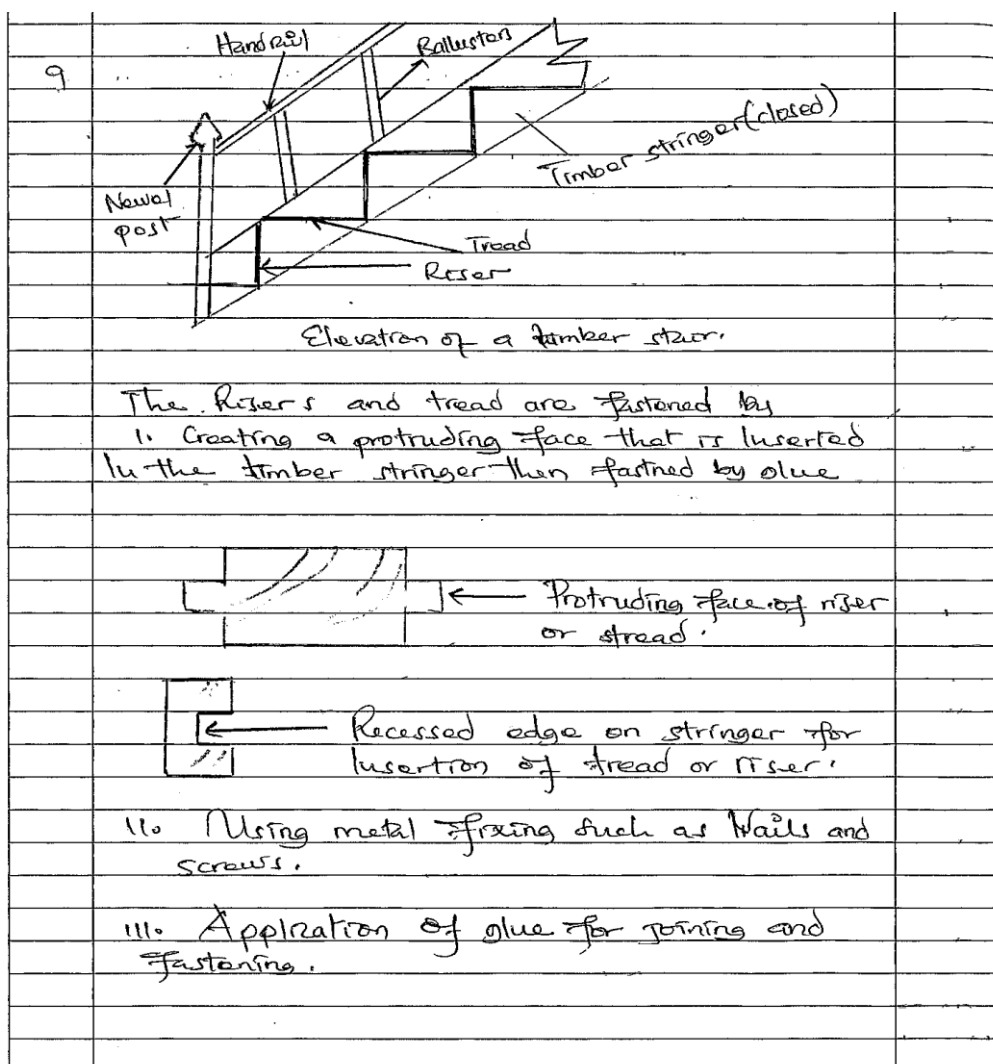 Handrail
Ballusters
9
Timber stringer (closed)
Newel
post
Tread
Riser
Elevation of a timber stair.
The Risers and tread are fastened by
1. Creating a protruding face that is Inserted
In the timber stringer then fastned by glue
Protruding face of riser
or stread.
Recessed edge on stringer for
Insertion of tread or riser.
11. Using metal fixing such as Nails and
screws.
111. Application of glue for joining and
Fastening.